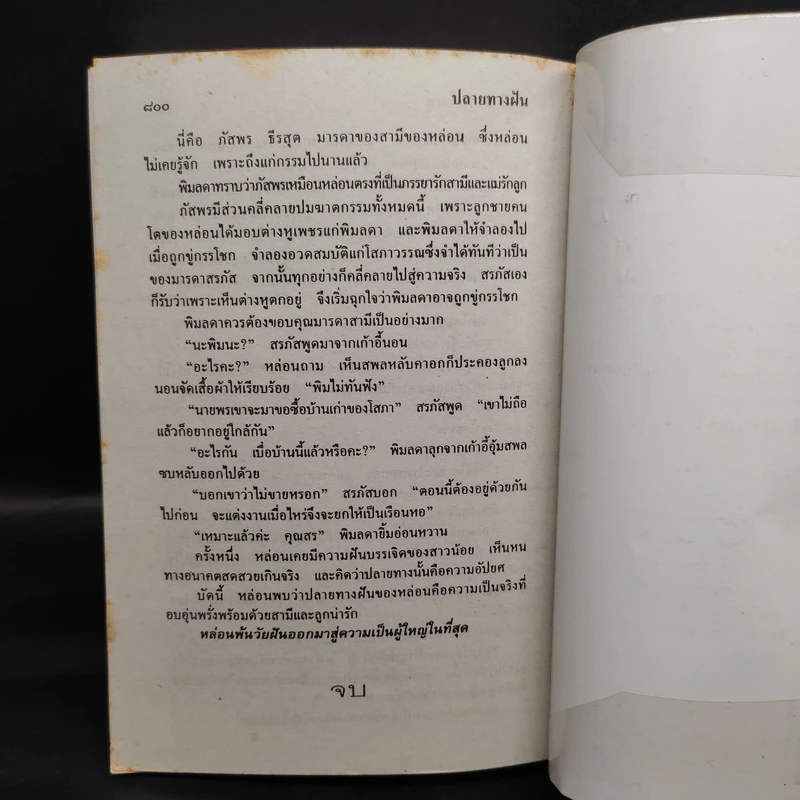 ๘๐๐ ปลายทางฝัน
นี่คือ ภัสพร ธีรสุต มารดาของสามีของหล่อน ซึ่งหล่อน
ไม่เคยรู้จัก เพราะถึงแก่กรรมไปนานแล้ว
พิมลดาทราบว่าภัสพรเหมือนหล่อนตรงที่เป็นภรรยารักสามีและแม่รักลูก
ภัสพรมีส่วนคลี่คลายปมฆาตกรรมทั้งหมดนี้ เพราะลูกชายคน
โตของหล่อนได้มอบต่างหูเพชรแก่พิมลดา และพิมลดาให้จำลองไป
เมื่อถูกขู่กรรโชก จำลองอวดสมบัติแก่โสภาวรรณซึ่งจำได้ทันทีว่าเป็น
ของมารดาสรภัส จากนั้นทุกอย่างก็คลี่คลายไปสู่ความจริง สรภัสเอง
ก็รับว่าเพราะเห็นต่างหูตกอยู่ จึงเริ่มฉุกใจว่าพิมลดาอาจถูกขู่กรรโชก
พิมลดาควรต้องขอบคุณมารดาสามีเป็นอย่างมาก
“นะพิมนะ?” สรภัสพูดมาจากเก้าอี้นอน
“อะไรคะ?” หล่อนถาม เห็นสพลหลับคาอกก็ประคองลูกลง
นอนจัดเสื้อผ้าให้เรียบร้อย “พิมไม่ทันฟัง”
“นายพรเขาจะมาขอซื้อบ้านเก่าของโสภา” สรภัสพูด “เขาไม่ถือ
แล้วก็อยากอยู่ใกล้กัน”
“อะไรกัน เบื่อบ้านนี้แล้วหรือคะ?” พิมลดาลุกจากเก้าอี้อุ้มสพล
ซบหลับออกไปด้วย
“บอกเขาว่าไม่ขายหรอก” สรภัสบอก “ตอนนี้ต้องอยู่ด้วยกัน
ไปก่อน จะแต่งงานเมื่อไหร่จึงจะยกให้เป็นเรือนหอ”
“เหมาะแล้วค่ะ คุณสร” พิมลดายิ้มอ่อนหวาน
ครั้งหนึ่ง หล่อนเคยมีความฝันบรรเจิดของสาวน้อย เห็นหน
ทางอนาคตสดสวยเกินจริง และคิดว่าปลายทางนั้นคือความอัปยศ
บัดนี้ หล่อนพบว่าปลายทางฝันของหล่อนคือความเป็นจริงที่
อบอุ่นพรั่งพร้อมด้วยสามีและลูกน่ารัก
หล่อนพ้นวัยฝันออกมาสู่ความเป็นผู้ใหญ่ในที่สุด
จบ